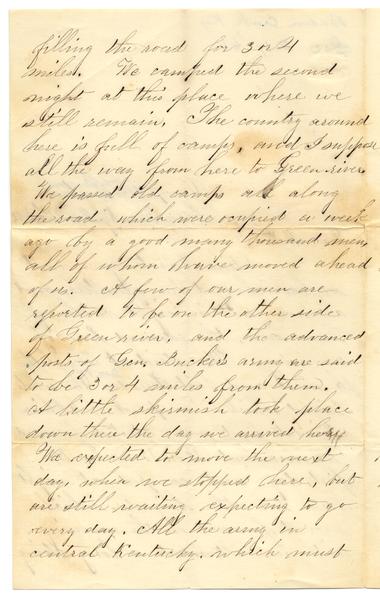 filling the road for 3 or 4
miles. We camped the second
night at this place where we
still remain. The country around
here is full of camps, and I suppose
all the way from here to Green river.
We passed old camps all along
the road which were occupied a week
ago by a good many thousand men,
all of whom have moved ahead
of us. A few of our men are
reported to be on the other side
of Green river, and the advanced
posts of Gen. Buckers army are said
to be 3 or 4 miles from them.
A little skirmish took place
down there the day we arrived here
We expected to move the next
day, when we stopped here, but
are still waiting expecting to go
every day. All the army in
central Kentucky. which must